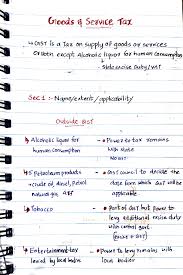 Goods & Service Tax
→ GST is a Tax on supply of goods or services
or both except Alcoholic liquor for human Consumption
↳ state excise duty/VAT
Sec 1 :- Name/extent/applicability
Outside GST
↓ Alcoholic liquor for human consumption
- Power to tax remains with state
No GST
↓ 5 Petroleum products
- crude oil, diesel, Petrol
natural gas, ATF
- GST council to decide the date from which GST will be applicable
↓ Tobacco
- Part of GST but Power to levy additional excise duty with central govt
(Excise + GST)
↓ Entertainment tax
levied by local bodies
- Power to levy remains with local bodies